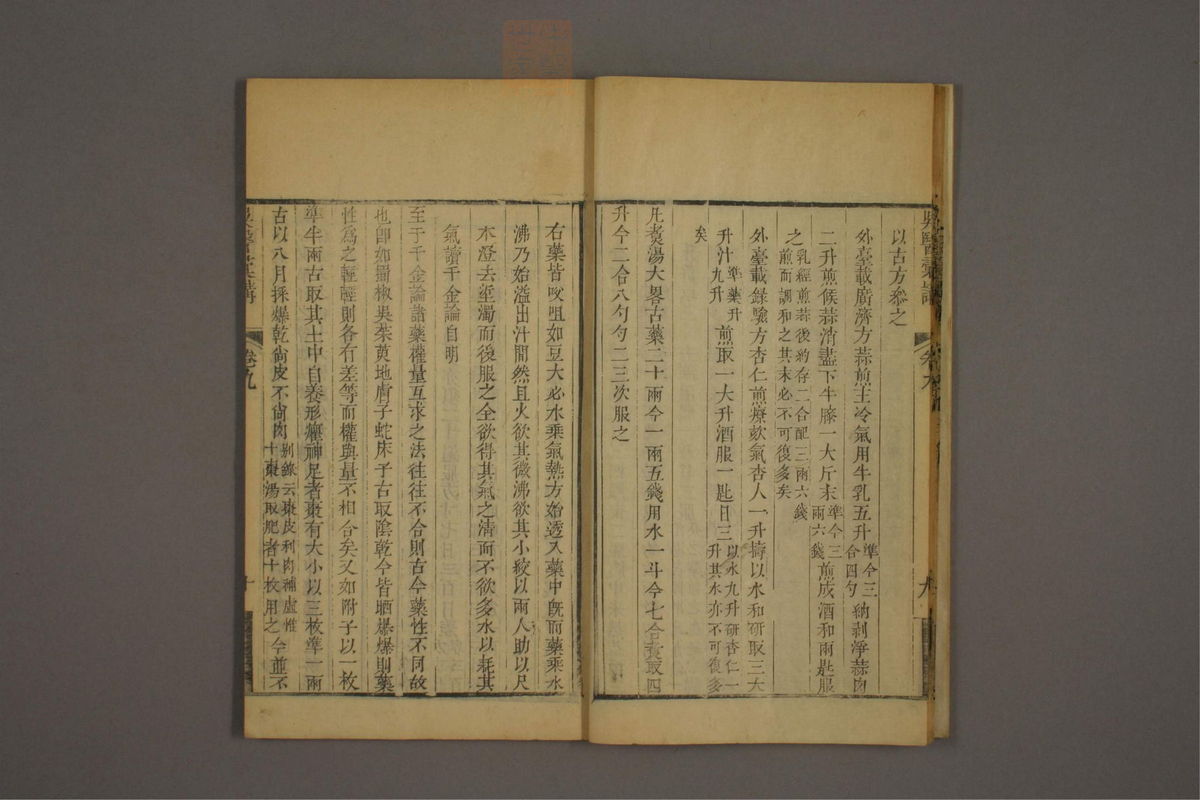 吳醫彙講
卷九
九
以古方叅之
外臺載廣濟方蒜煎主冷氣用牛乳五升
準今三
合四勺
納剥淨蒜肉
二升煎候蒜消盡下牛膝一大斤末
準今三
兩六錢
煎成酒和兩匙服
之
乳經煎蒜後約存二合配三兩六錢
煎而調和之其末必不可復多矣
外臺載錄驗方杏仁煎療欬氣杏人一升擣以水和研取三大
升汁
以水九升研杏仁一
升其水亦不可復多
準藥升
九升
煎取一大升酒服一匙日三
矣
凡煑湯大畧古藥二十兩今一兩五錢用水一斗今七合煑取四
升今二合八勺勺二三次服之
右藥皆㕮咀如豆大必水乘氣熱方始透入藥中旣而藥乘水
沸乃始溢出汁間然且火欲其微沸欲其小絞以兩人助以尺
木澄去垽濁而後服之全欲得其氣之清而不欲多水以耗其
氣讀千金論自明
至于千金論諸藥權量互求之法往往不合則古今藥性不同故
也卽如蜀椒吳茱萸地膚子蛇床子古取陰乾今皆晒爆爆則藥
性爲之輕輕則各有差等而權與量不相合矣又如附子以一枚
準半兩古取其土中自養形癟神足者棗有大小以三枚準一兩
古以八月採爆乾尙皮不尙肉
別錄云棗皮利肉補虛惟
十棗湯取肥者十枚用之
今並不
吳醫彙講
卷九
十